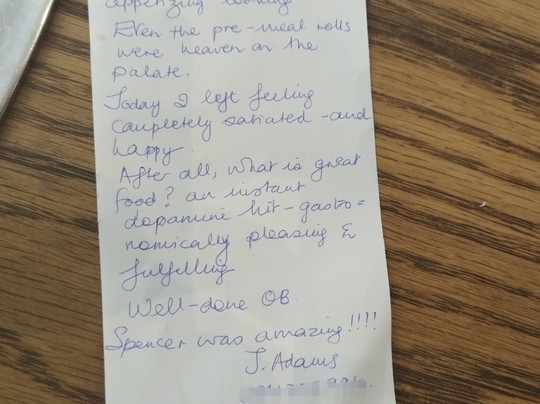 appetizing looking
Even the pre-meal rolls
were heaven on the
palate.
Today I left feeling
completely satiated - and
happy.
After all, what is great
food? an instant
dopamine hit - gastro=
nomically pleasing &
fulfilling
Well-done OB.
Spencer was amazing!!!!
J. Adams